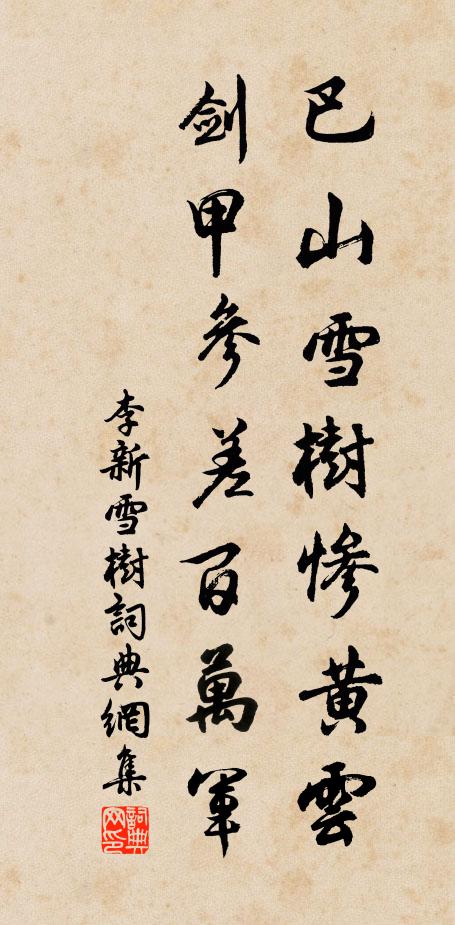 巴山雪樹慘黃雲
劍甲參差百萬軍
李新雪樹詞典網集
詞典網印